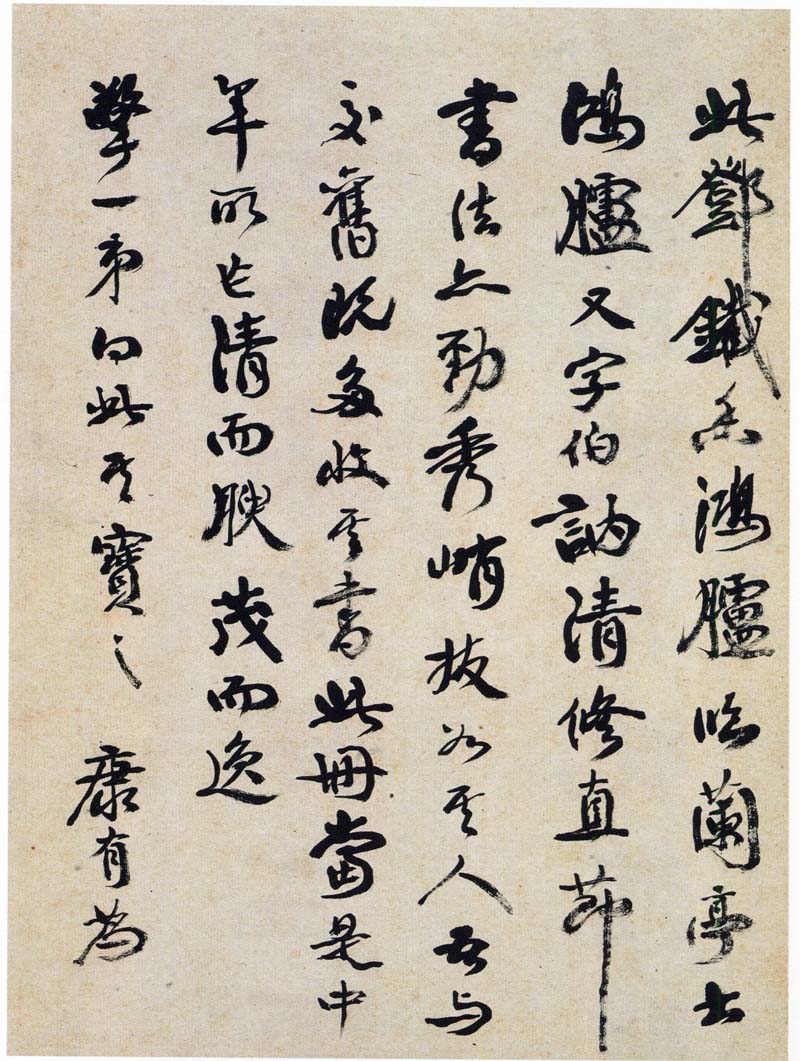 此鄧鐵香鴻臚臨蘭亭也
鴻臚又字伯訥清修直節
書法亦勁秀峭拔如其人吾与
交舊既多收其書此冊當是中
年所作清而腴茂而逸
擎一弟得此其寶之
康有為